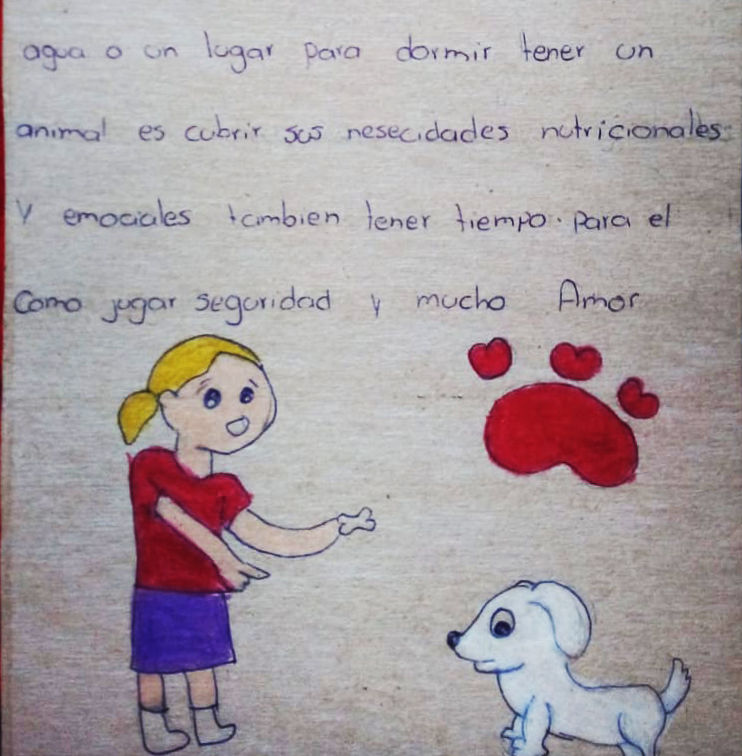 agua o un lugar para dormir tener un
animal es cubrir sus nesecidades nutricionales
Y emociales tambien tener tiempo. para el
Como jugar seguridad y mucho Amor